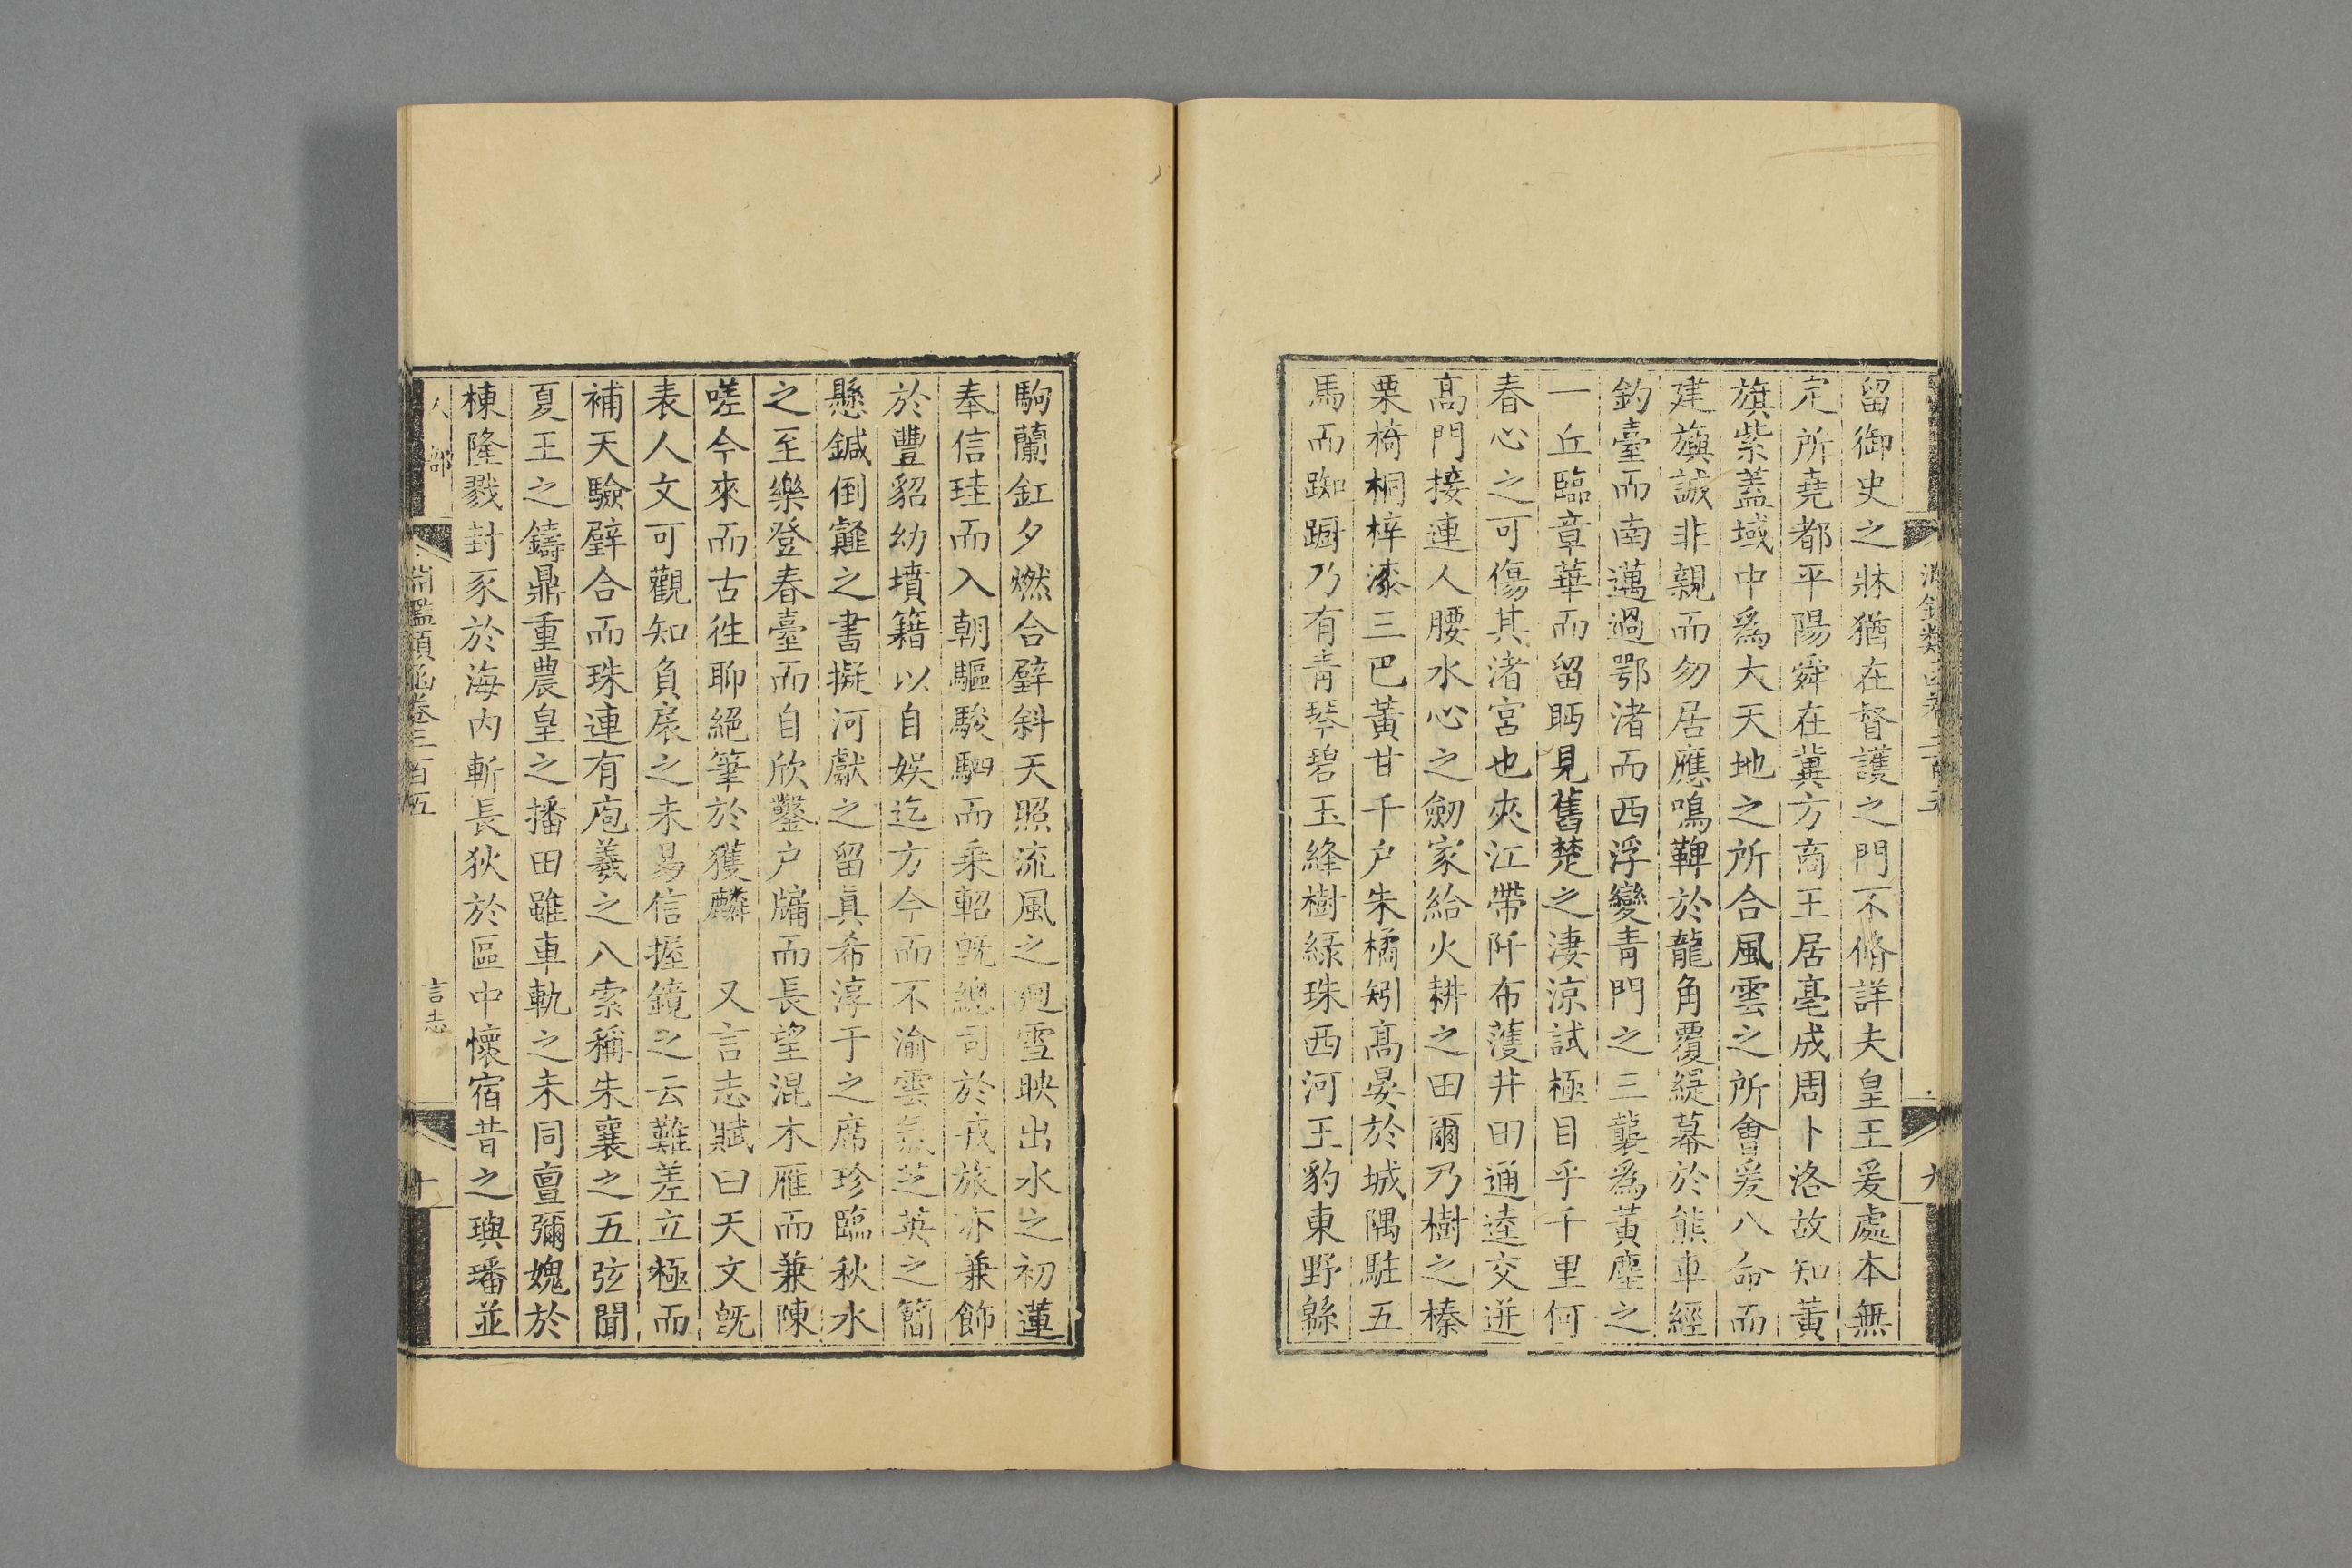 留御史之牀猶在督護之門不脩詳夫皇王爰處本無
定所堯都平陽舜在冀方商王居亳成周卜洛故知黃
旗紫蓋域中爲大天地之所合風雲之所會爰八命而
建旟誠非親而勿居應鳴鞞於龍角覆緹幕於熊車經
釣臺而南邁過鄂渚而西浮變青門之三襲爲黃塵之
一丘臨章華而留眄見舊楚之淒涼試極目乎千里何
春心之可傷其渚宮也夾江帶阡布濩井田通逵交迸
高門接連人腰水心之劒家給火耕之田爾乃樹之榛
栗椅桐梓漆三巴黃甘千戶朱橘矧高晏於城隅駐五
馬而踟躕乃有青琴碧玉絳樹綠珠西河王豹東野緜
九
駒蘭釭夕燃合璧斜天照流風之廻雪映出水之初蓮
奉信珪而入朝驅駿駟而乘軺旣總司於戎旅亦兼飾
於豐貂幼墳籍以自娛迄方今而不渝雲氣芝英之簡
懸鍼倒韰之書擬河獻之留眞希淳于之席珍臨秋水
之至樂登春臺而自欣鑿戶牖而長望混木雁而兼陳
嗟今來而古徃聊絕筆於獲麟 又言志賦曰天文旣
表人文可觀知負扆之未易信握鏡之云難差立極而
補天驗璧合而珠連有庖羲之八索稱朱襄之五弦聞
夏王之鑄鼎重農皇之播田雖車軌之未同亶彌媿於
棟隆戮封豕於海內斬長狄於區中懷宿昔之璵璠並
人部
淵鑑類函卷三百五
言志
十